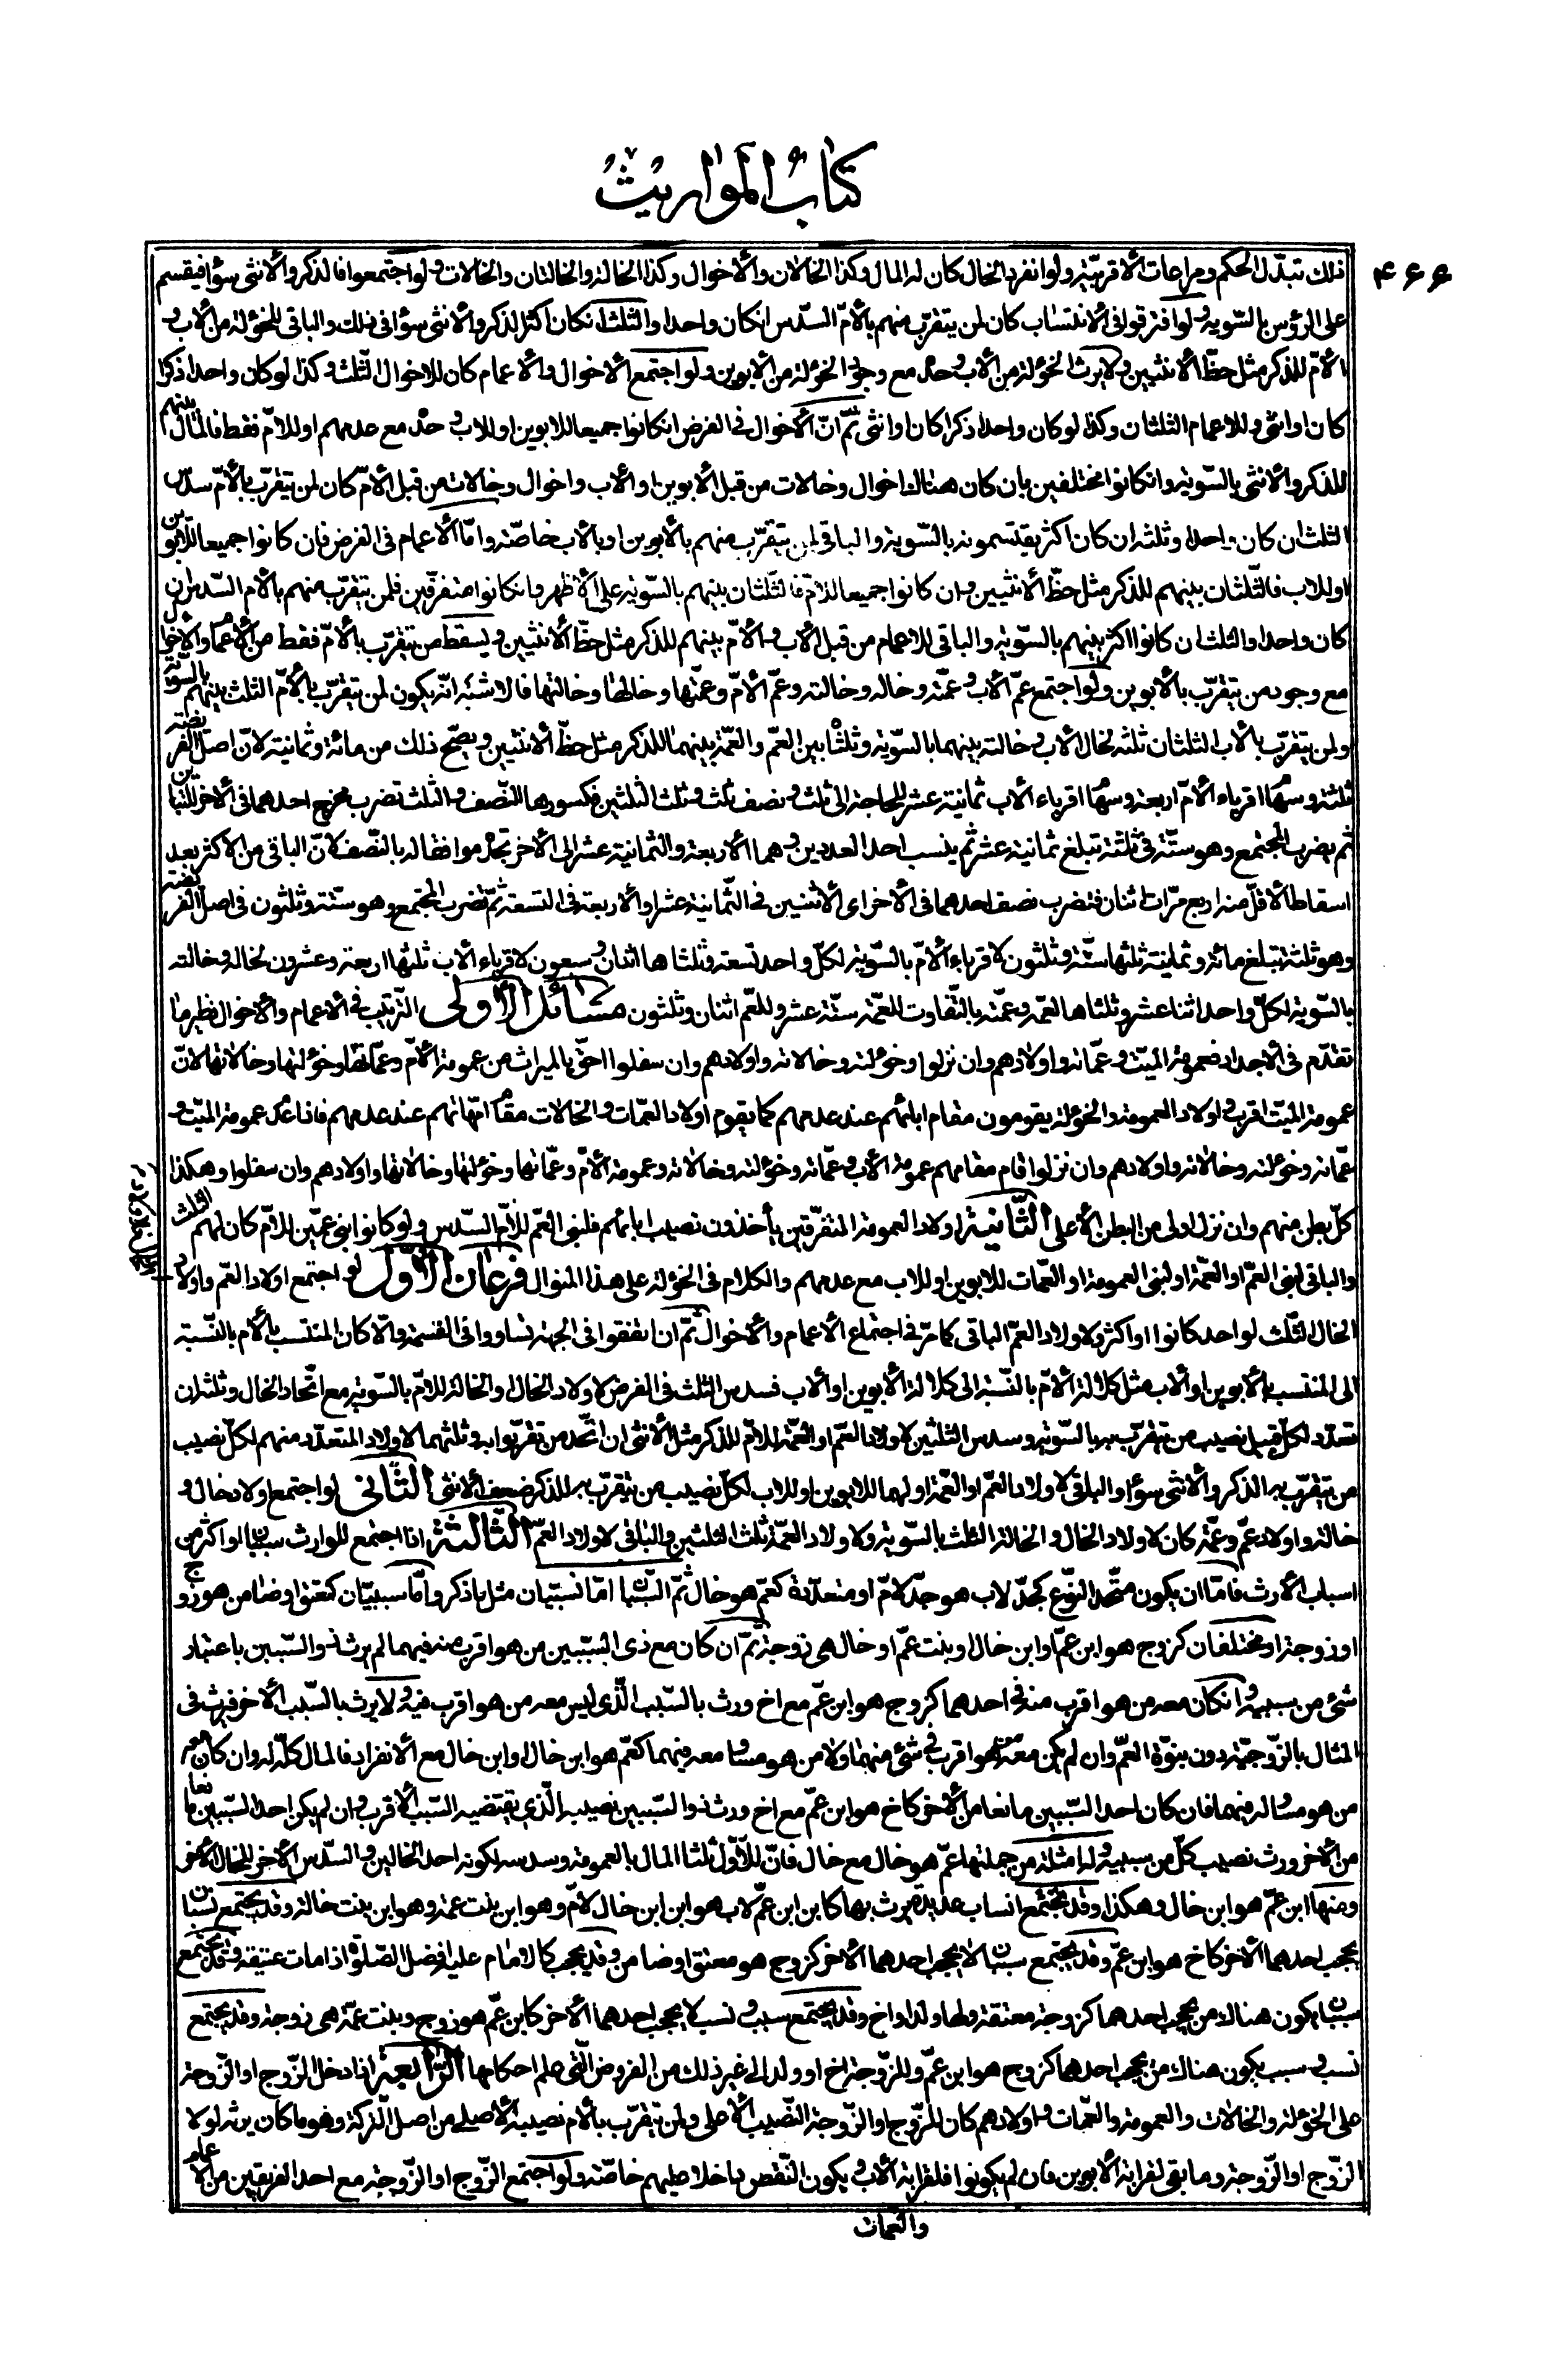 كتاب المواريث
۴۶۶
ذلك تبدّل الحكم ومراعات الاقربيّة ولو انفرد الخال كان له المال وكذا الخالان والاخوال وكذا الخالة والخالتان والخالات ولو اجتمعوا فالذكر والانثى سواء فيقسم
على الرؤس بالسّوية ولو افترقوا في الانتساب كان لمن يتقرّب منهم بالامّ السّدس انكان واحدا والثلث انكان اكثر الذكر والانثى سواء في ذلك والباقي للخؤلة من الاب و
الامّ للذكر مثل حظّ الانثيين ولا يرث الخؤلة من الاب وحده مع وجود الخؤلة من الابوين ولو اجتمع الاخوال والاعمام كان للاخوال الثلث وكذا لو كان واحدا ذكرا
كان او انثى وللاعمام الثلثان وكذا لو كان واحدا ذكرا كان او انثى ثمّ انّ الاخوال في الفرض انكانوا جميعا للابوين او للاب وحده مع عدمهم او للامّ فقط فالمال بينهم
للذكر والانثى بالسّوية وانكانوا مختلفين بان كان هناك اخوال وخالات من قبل الابوين او الاب واخوال وخالات من قبل الامّ كان لمن يتقرّب بالامّ سدس
الثلث ان كان واحدا وثلثه ان كان اكثر يقتسمونه بالسّوية والباقي لمن يتقرّب منهم بالابوين او بالاب خاصّة وامّا الاعمام في الفرض فان كانوا جميعا للابوين
او للاب فالثّلثان بينهم للذكر مثل حظّ الانثيين وان كانوا جميعا للامّ فالثّلثان بينهم بالسّوية على الاظهر وانكانوا متفرّقين فلمن يتقرّب منهم بالامّ السّدس ان
كان واحدا والثلث ان كانوا اكثر بينهم بالسّوية والباقي للاعمام من قبل الاب والامّ بينهم للذكر مثل حظّ الانثيين ويسقط من يتقرّب بالامّ فقط من الاعمام والاخوال
مع وجود من يتقرّب بالابوين ولو اجتمع عمّ الاب وعمّته وخاله وخالته وعمّ الامّ وعمّتها وخالها وخالتها فالاشبه انّه يكون لمن يتقرّب بالامّ الثلث بينهم بالسويّة
ولمن يتقرّب بالاب الثلثان ثلثه لخال الاب وخالته بينهما بالسّوية وثلثاه بين العمّ والعمّة بينهما للذكر مثل حظّ الانثيين ويصحّ ذلك من مائة وثمانية لانّ اصل الفريضة
ثلثة وسهام اقرباء الامّ اربعة وسهام اقرباء الاب ثمانية عشر للحاجة الى ثلث ونصف ثلث وثلث الثلثين فكسورها النّصف والثلث تضرب مخرج احدهما في الاخر للتباين
ثم يضرب المجتمع وهو ستّة في ثلثة تبلغ ثمانية عشر ثم ينسب احد العددين وهما الاربعة والثمانية عشر الى الاخر تجده موافقا له بالنّصف لانّ الباقي من الاكثر بعد
اسقاط الاقلّ منه اربع مرّات اثنان فتضرب نصف احدهما في الاخر اى الاثنين في الثّمانية عشر او الاربعة في التسعة ثمّ تضرب المجتمع وهو ستّة وثلثون في اصل الفريضة
وهو ثلثة تبلغ مائة وثمانية ثلثها ستّة وثلثون لاقرباء الامّ بالسّوية لكلّ واحد تسعة وثلثاها اثنان وسبعون لاقرباء الاب ثلثها اربعة وعشرون لخاله وخالته
بالسّوية لكلّ واحد اثنا عشر وثلثاها لعمّه وعمّته بالتّفاوت للعمّة ستّة عشر وللعمّ اثنان وثلثون مسائل الاولى التّرتيب في الاعمام والاخوال نظير ما
تقدّم في الاجداد فعمومة الميّت وعمّاته واولادهم وان نزلوا وخؤلته وخالاته واولادهم وان سفلوا احقّ بالميراث من عمومة الامّ وعمّاتها وخؤلتها وخالاتها لانّ
عمومة الميّت اقرب واولاد العمومة والخؤلة يقومون مقام ابائهم عند عدمهم كما يقوم اولاد العمّات والخالات مقام امّهاتهم عند عدمهم فاذا عدم عمومة الميّت و
عمّاته وخؤلته وخالاته واولادهم وان نزلوا قام مقامهم عمومة الاب وعمّاته وخؤلته وخالاته وعمومة الامّ وعمّاتها وخؤلتها وخالاتها واولادهم وان سفلوا وهكذا
كلّ بطن منهم وان نزل اولى من البطن الاعلى الثّانية اولاد العمومة المتفرّقين يأخذون نصيب ابائهم فلبني العّم للامّ السّدس ولو كانوا ابنى عمّين للامّ كان لهم الثلث
والباقي لبني العمّ او العمّة او لبني العمومة او العمّات للابوين او للاب مع عدمهم والكلام في الخؤلة على هذا المنوال فرعان الاوّل لو اجتمع اولاد العمّ واولاد
الخال الثّلث لواحد كانوا او اكثر ولاولاد العمّ الباقي كما مرّ في اجتماع الاعمام والاخوال ثمّ ان اتفقوا في الجهة تساووا في القسمة والّا كان المنتسب بالام بالنّسبة
الى المنتسب بالابوين او الاب مثل كلالة الامّ بالنّسبة الى كلالة الابوين او الاب فسدس الثلث في الفرض لاولاد الخال او الخالة للامّ بالسّوية مع اتّحاد الخال وثلثه ان
تعدّد لكلّ قبيل نصيب من يتقرّب به بالسّوية وسدس الثلثين لاولاد العّم او العّمة للامّ للذكر مثل الانثى ان اتّحد من تقرّبوا به وثلثهما لاولاد المتعدّد منهم لكلّ نصيب
من يتقرّب به الذكر والانثى سواء والباقي لاولاد العمّ او العمّة او لهما للابوين او للاب لكلّ نصيب من يتقرّب به للذكر ضعف الانثى الثّاني لو اجتمع اولاد خال و
خالة واولاد عمّ وعمّة كان لاولاد الخال والخالة الثلث بالسّوية ولاولاد العمّة ثلث الثلثين والباقي لاولاد العمّ الثّالثة اذا اجتمع للوارث سببان او اكثر من
اسباب الارث فامّا ان يكون متّحد النّوع كجدّ لاب هو جدّ لامّ او متعدّدة كعمّ هو خال ثمّ السّببان امّا نسبيّان مثل ما ذكر وامّا سببيّان كمعتق او ضامن هو زوج
او زوجة او مختلفان كزوج هو ابن عمّ او ابن خال او بنت عمّ او خال هى زوجة ثمّ ان كان مع ذى السّببين من هو اقرب منه فيهما لم يرث ذو السّببين باعتبار
شئ من سببيه وانكان معه من هو اقرب منه في احدهما كزوج هو ابن عمّ مع اخ ورث بالسّبب الّذى ليس معه من هو اقرب فيه ولا يرث بالسّبب الاخر فيرث في
المثال بالزّوجيّة دون بنوّة العمّ وان لم يكن معه من هو اقرب في شئ منهما ولا من هو مساو معه فيهما كعّم هو ابن خال او ابن خال مع الانفراد فالمال كلّه له وان كان معه
من هو مساو له فيهما فان كان احد السّببين مانعا من الاخر كاخ هو ابن عمّ مع اخ ورث ذو السّببين نصيبه الّذى يقتضيه السّبب الاقرب وان لم يكن احد السّببين مانعا
من الاخر ورث نصيب كلّ من سببيه وله امثلة من جملتها عمّ هو خال مع خال فانّ للاوّل ثلثا المال بالعمومة وسدسه لكونه احد الخالين والسّدس الاخر للخال الاخر
ومنها ابن عمّ هو ابن خال وهكذا وقد يجتمع انساب عديدة يرث بها كابن ابن عمّ لاب هو ابن ابن خال لامّ وهو ابن بنت عمة وهو ابن بنت خالة وقد يجتمع نسبان
يحجب احدهما الاخر كاخ هو ابن عمّ وقد يجتمع سببان لا يحجب احدهما الاخر كزوج هو معتق او ضامن وقد يحجب كالامام عليه افضل الصّلوة اذا مات عتيقه وقد يجتمع
سببان يكون هناك من يحجب احدهما كزوجة معتقة ولها ولد او اخ وقد يجتمع سبب ونسب لا يحجب احدهما الاخر كابن عمّ هو زوج وبنت عمّة هى زوجة وقد يجتمع
نسب وسبب يكون هناك من يحجب احدهما كزوج هو ابن عمّ وللزّوجة اخ او ولد الى غير ذلك من الفروض الّتى علم احكامها الرّابعة اذا دخل الزّوج او الزّوجة
على الخؤلة والخالات والعمومة والعمّات واولادهم كان للزّوج او الزّوجة النّصيب الاعلى ولمن يتقرّب بالام نصيبه الاصلى من اصل التّركة وهو ما كان يرثه لولا
الزّوج او الزّوجة وما بقى لقرابة الابوين فان لم يكونوا فلقرابة الاب ويكون النّقص داخلا عليهم خاصّة ولو اجتمع الزّوج او الزّوجة مع احد الفريقين من الاعمام
والعمات